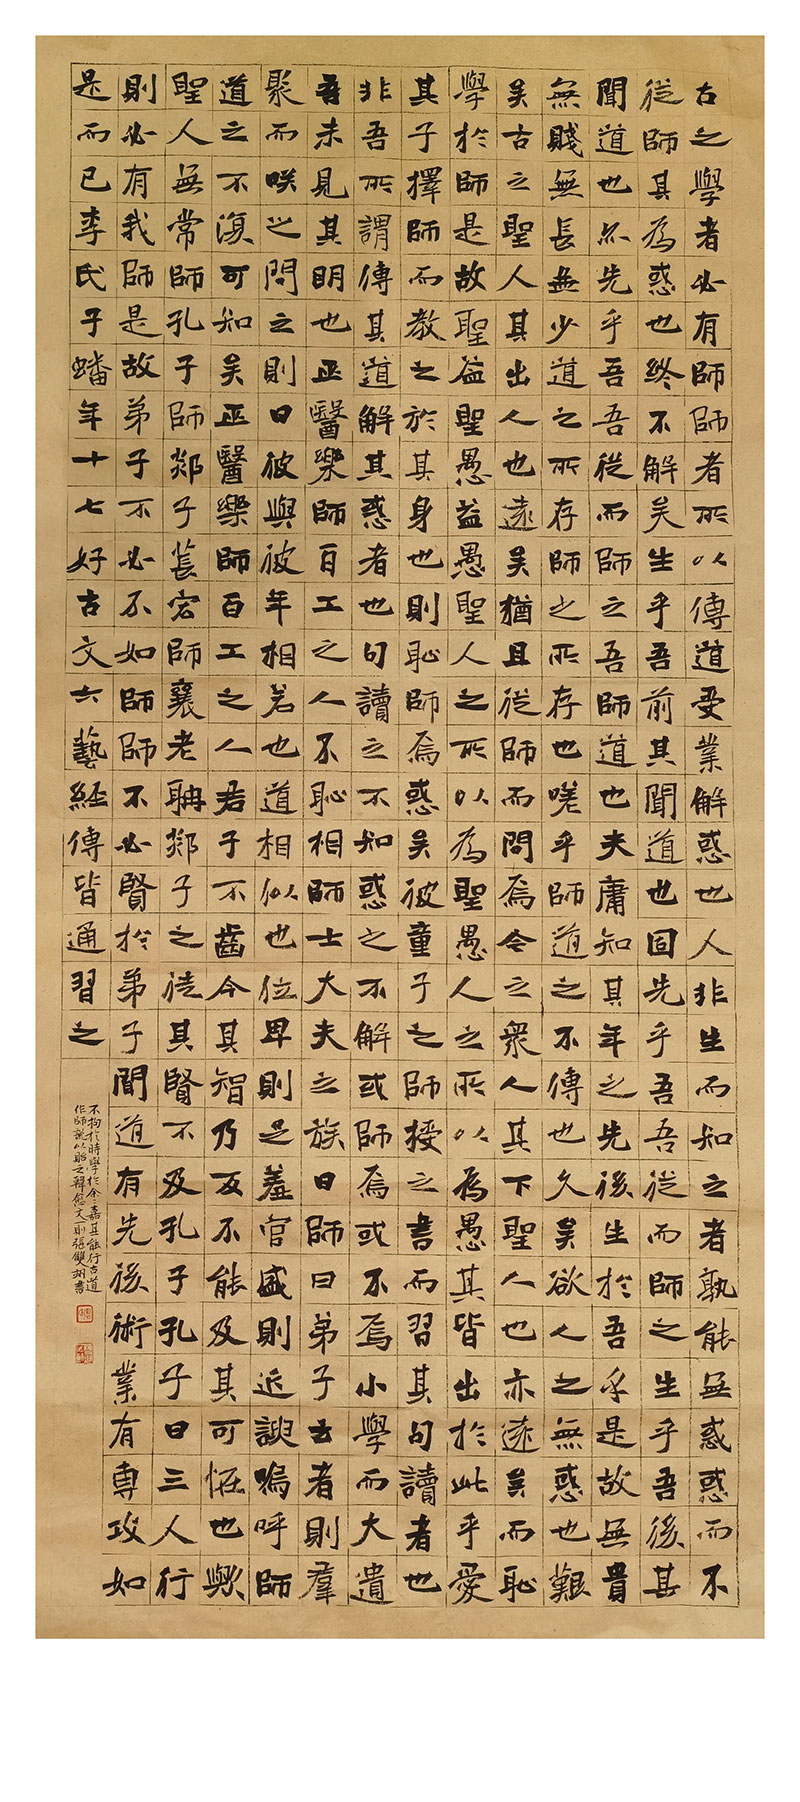 古之學者必有師師者所以傳道受業解惑也人非生而知之者孰能無惑惑而不
從師其為惑也終不解矣生乎吾前其聞道也固先乎吾吾從而師之生乎吾後其
聞道也亦先乎吾吾從而師之吾師道也夫庸知其年之先後生於吾乎是故無貴
無賤無長無少道之所存師之所存也嗟乎師道之不傳也久矣欲人之無惑也艱
矣古之聖人其出人也遠矣猶且從師而問焉今之眾人其下聖人也亦遠矣而恥
學於師是故聖益聖愚益愚聖人之所以為聖愚人之所以為愚其皆出於此乎愛
其子擇師而教之於其身也則恥師焉惑矣彼童子之師授之書而習其句讀者也
非吾所謂傳其道解其惑者也句讀之不知惑之不解或師焉或不焉小學而大遺
吾未見其明也巫醫樂師百工之人不恥相師士大夫之族曰師曰弟子云者則羣
聚而咲之問之則曰彼與彼年相若也道相似也位卑則足羞官盛則近諛嗚呼師
道之不復可知矣巫醫樂師百工之人君子不齒今其智乃反不能及其可怪也歟
聖人無常師孔子師郯子萇宏師襄老聃郯子之徒其賢不及孔子孔子曰三人行
則必有我師是故弟子不必不如師師不必賢於弟子聞道有先後術業有專攻如
是而已李氏子蟠年十七好古文六藝經傳皆通習之
不拘於時學於余:嘉其能行古道
作師說以貽之韓愈文一則張雙書